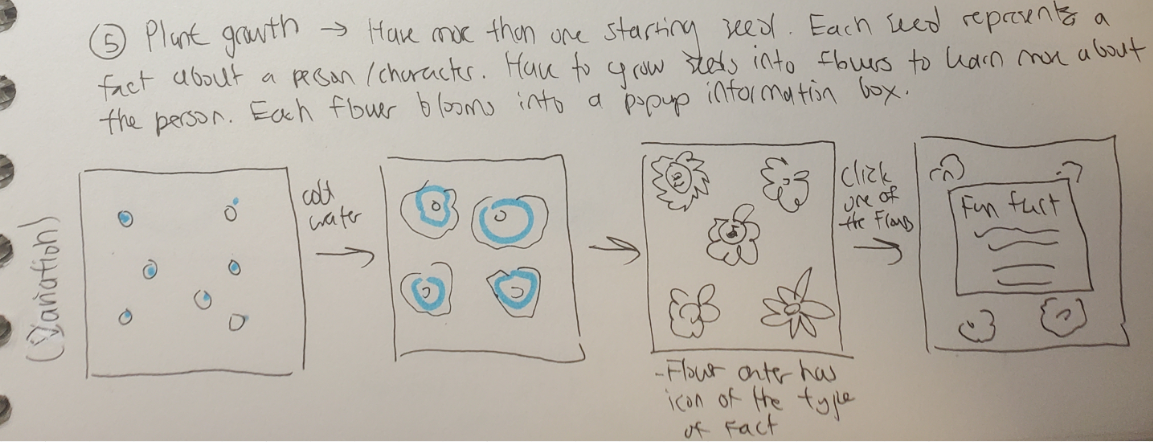 ⑤ Plant growth → Have more than one starting seed. Each seed represents a
fact about a person/character. Have to grow seeds into flowers to learn more about
the person. Each flower blooms into a popup information box.
(Variation)
add
water
click
one of
the flowers
Fun fact
-Flower center has
icon of the type
of fact